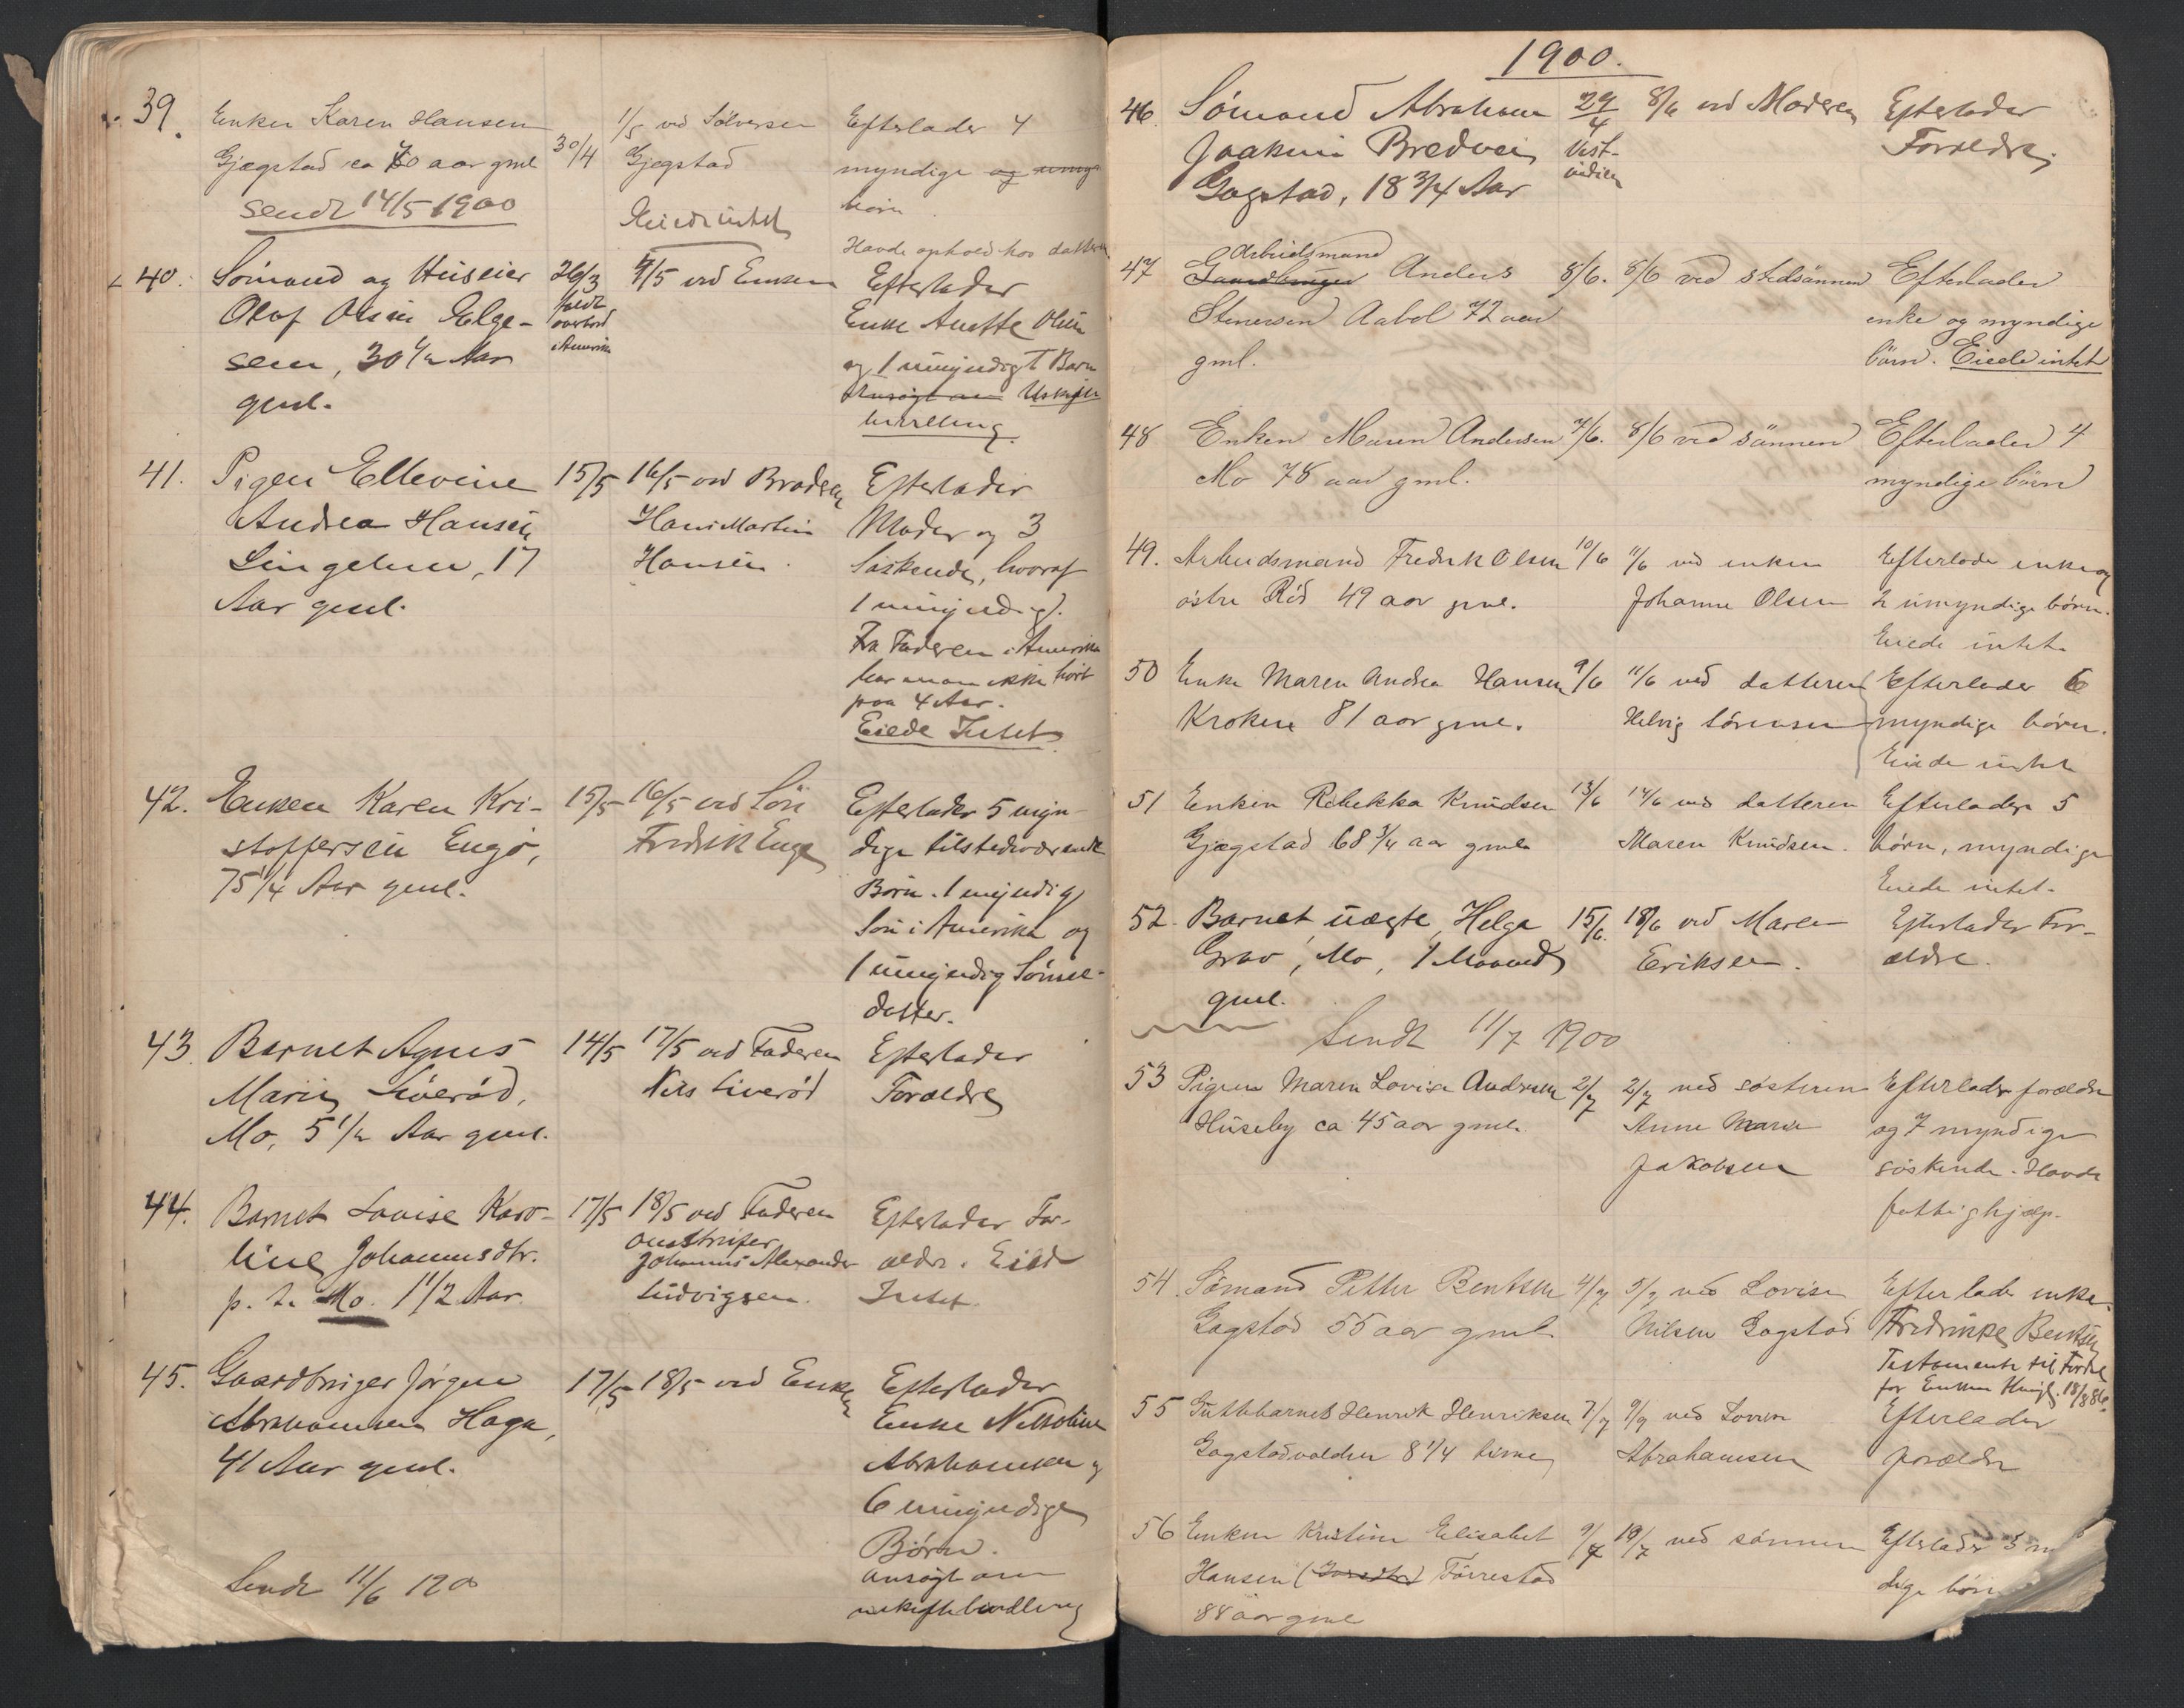 39. Enken Karen Hansen 30/4 1/5 ved Sölversen Efterlader 4
Gjægstad ca 80 aar gml Gjægstad myndige og umyn
sendt 14/5 1900 Eiede intet börn.
Havde ophold hos datteren
40. Sömand og Huseier 26/3 4/5 ved Enken Efterlader
Olaf Olsen Elge- faldt overbord Enke Anette Olsen
sem, 30 1/2 Aar i Amerika og 1 umyndigt Barn
gml. Ansøgt om Uskifte
behandling.
41. Pigen Ellevine 15/5 16/5 ved Broderen Efterlader
Andrea Hansen Hans Martin Moder og 3
Lingelem, 17 Hansen. Söskende, hvoraf
Aar gml. 1 umyndig.
Fra Faderen i Amerika
har man ikke hört
paa 4 Aar.
Eiede Intet
42. Enken Karen Kri- 15/5 16/5 ved Sön Efterlader 5 myn-
stoffersen Engö, Fredrik Engö dige tilstedeværende
75 1/4 Aar gml. Börn. 1 myndig
Sön i Amerika og
1 umyndig Sönne-
datter.
43. Barnet Agnes 14/5 17/5 ved Faderen Efterlader
Marie Liverød, Nils Liveröd Forældre
Mo, 5 1/2 Aar gml.
44. Barnet Lovise Karo- 17/5 18/5 ved Faderen Efterlader For-
line Johannesdtr. Johannes Alexander ældre. Eied
p. t. Mo. 1 1/2 Aar. Ludvigsen. Intet.
45. Gaardbruger Jörgen 17/5 18/5 ved Enken Efterlader
Abrahamsen Haga, Enke Nikoline
41 Aar gml. Abrahamsen og
6 umyndige
Börn.
ansøgt om
uskiftebehandling
Sendt 11/6 1900
1900.
46. Sömand Abraham 29/4 8/6 ved Moderen Efterlader
Joakim Bredvei Vest- Forældre.
Gogstad, 18 3/4 Aar indien
47 Arbeidsmand
Gaardbruger Anders 8/6. 8/6 ved stedsönnen Efterlader
Stenersen Aabol 72 aar enke og myndige
gml. börn. Eiede intet
48 Enken Maren Andersen 7/6. 8/6 ved sönnen Efterlader 4
Mo 78 aar gml. myndige börn
49. Arbeidsmand Fredrik Olsen 10/6 11/6 ved enken Efterlader enke og
östre Röd 49 aar gml. Johanne Olsen 2 umyndige börn.
Eiede intet.
50 Enke Maren Andrea Hansen 9/6 11/6 ved datteren Efterlader 6
Krokene 81 aar gml. Helvig Sörensen myndige börn.
Eiede intet
51 Enken Rebekka Knudsen 13/6 14/6 ved datteren Efterlader 5
Gjægstad 68 3/4 aar gml Maren Knudsen. börn, myndige
Eiede intet.
52. Barnet uægte, Helga 15/6. 18/6 ved Maren Efterlader For-
Grav, Mo, 1 Maaned Eriksen. ældre.
gml.
Sendt 11/7 1900
53 Pigen Maren Lovise Andersen 2/7 2/7 ved søsteren Efterlader forældre
Huseby ca 45 aar gml. Anne Marie og 7 myndige
Jakobsen söskende. Havde
fattighjælp.
54. Sömand Petter Bentsen 4/7 5/7 ved Lovise Efterlader enke
Gogstad 55 aar gml. Nilsen Gogstad Fredrikke Bentsen
Testamente til Fordel
for Enken
55 Guttebarnet Henrik Henriksen 7/7 9/7 ved Lovise Efterlader
Gogstadvolden 8 1/4 time Abrahamsen forældre
56 Enken Kristine Elisabet 9/7 10/7 ved sönnen Efterlader 5 m
Hansen Förrestad dige börn
88 aar gml